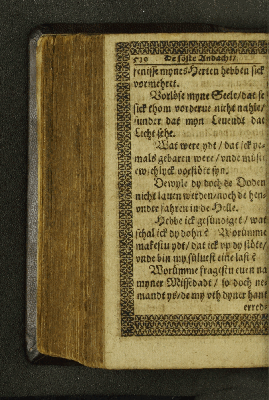 530 De söste Andacht/
jenisse mynes Herten hebben sick
vormehret.
Vorlöse myne Seele/ dat se
sick thom vorderue nicht nahle/
sunder dat myn Leuendt dat
Lecht sehe.
Wat were ydt/ dat ick ye-
mals gebaren were/ vnde müste
ewichlyck vorlaren syn.
Dewyle dy doch de Doden
nicht lauen werden/ noch de hen-
vnder fahren in de Helle.
Hebbe ick gesündiget/ wat
schal ick dy dohn? Worümme
makestu ydt/ dat ick vp dy stöte/
vnde bin my süluest eine last?
Worümme fragestu euen na
myner Missedadt/ so doch ne-
mandt ys/ de my vth dyner hant
errede